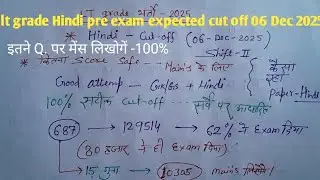 LT grade भर्ती - 2025
lt grade Hindi pre exam expected cut off 06 Dec 2025
* Hindi - Cut-off (06-Dec-2025)
इतने Q. पर मेंस लिखोगें -100%
Shift-II
* कितना Score Safe - Main's के लिए
कैसा रहा
Good attempt - GK/GS + Hindi
Paper-Hindi
100% सटीक Cut-off - सर्वे पर आधारित
687 → 129514 → 62% ने Exam दिया
(80 हजार ने ही Exam दिया)
→ 15 गुना → 10305 → main's लिखेंगे